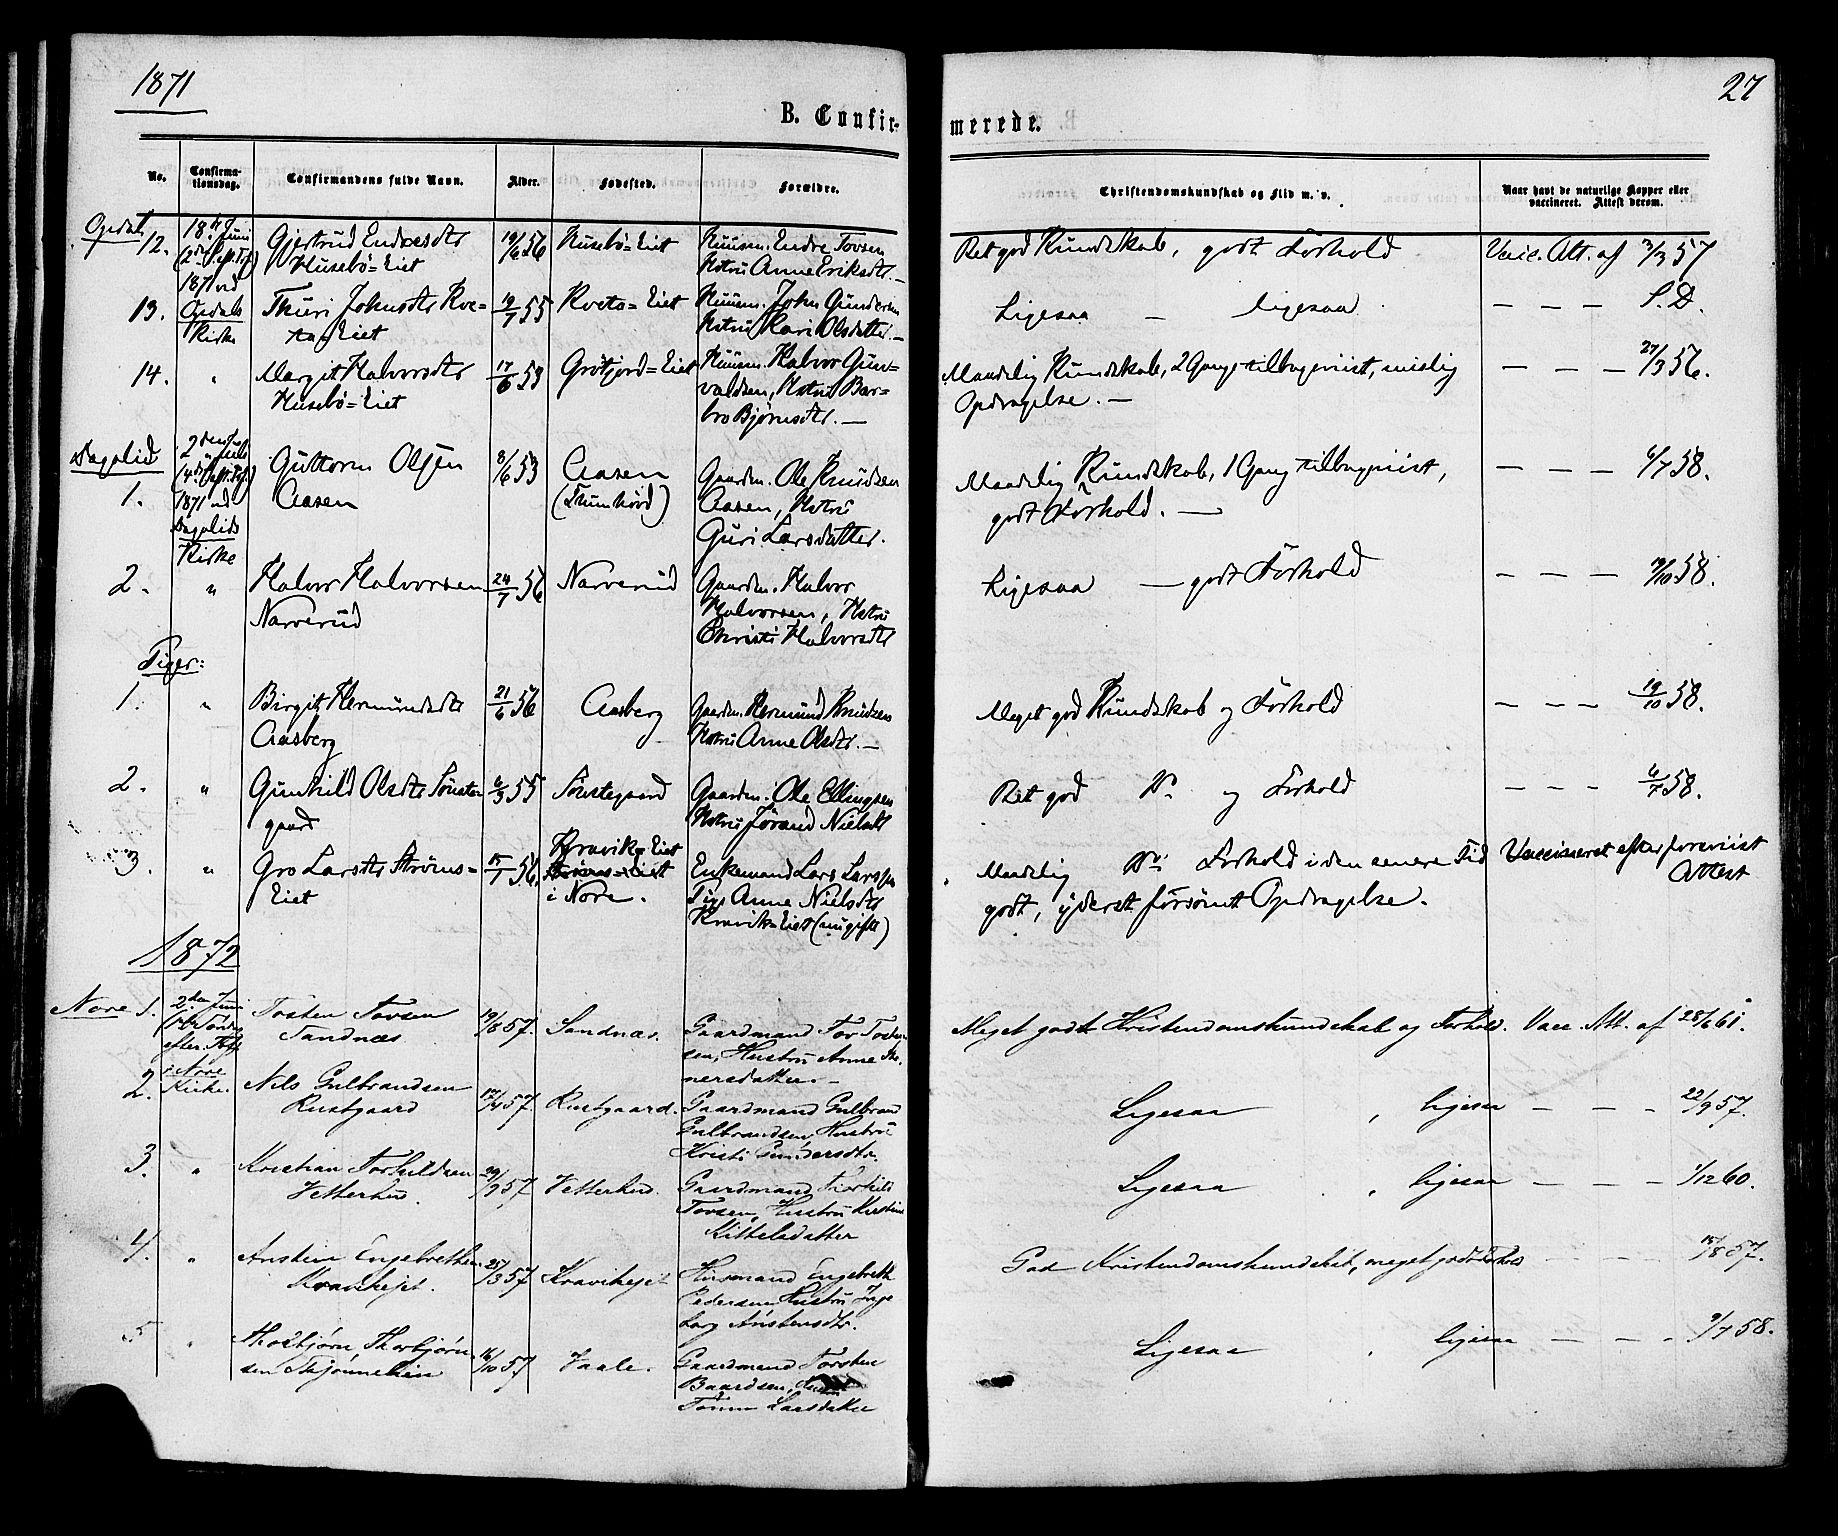 1871
27
B. Confirmerede.
No.
Confirmationsdag.
Confirmandens fulde Navn.
Alder.
Fødested.
Forældre.
Christendomskundskab og Flid m. v.
Naar havt de naturlige Kopper eller vaccineret. Attest derom.
Opdal 12. 18de Juni 1871 ved Opdals Kirke
Gjertrud Endresdtr Husebø=Eiet
19/6 56
Husebø=Eiet
Huusm. Endre Tovsen
Hstru Anne Eriksdtr. —
Ret god Kundskab, godt Forhold
Vacc. Att. af 3/3 57
13.
Thuri Johnsdtr Kvetas Eiet
19/7 55
Kveto=Eiet
Huusm. John Gundersen
Hstru Kari Olsdatter. —
Ligesaa — ligesaa
— — — S. D.
14. "
Margit Halvorsdtr
Husebø=Eiet
17/6 53
Grøtjord=Eiet
Huusm. Halvor Gunvaldsen, Hstru Barbro Bjørnsdtr. —
Maadelig Kundskab, 2 Gange tilbageviist, mislig
Opdragelse. —
— — — 27/3 56.
Dagalid 1.
2den Juli 1871 ved Dagalids Kirke
Guttorm Olsen
Aasen
8/6 53
Aasen
Gaardm. Ole Knudsen
Aasen, Hstru
Guri Larsdatter.
Maadelig Kundskab, 1 Gang tilbageviist,
godt Forhold. —
— — — 6/7 58.
2. "
Halvor Halvorsen
Narverud
24/7 56
Narverud
Gaardm. Halvor
Halvorsen, Hstru
Christi Halvorsdtr
Ligesaa — godt Forhold
— — — 58.
Piger:
1. "
Birgit Hermundsdtr
Aasberg
21/6 56
Aasberg
Gaardm. Hermund Knudsen
Hstru Anne Olsdtr. —
Meget god Kundskab og Forhold
— — — 19/10 58.
2. "
Gunhild Olsdtr Sønstegaard
6/3 55
Sønstegaard
Gaardm. Ole Ellingsen
Hstru Jørand Nielsdt
Ret god Do og Forhold
— — — 6/7 58.
3. "
Gro Larsdtr Strøms=
Eiet
15/1 56.
Kravik=Eiet
i Nore.
Enkemand Lars Larssen
Pige Anne Nielsdtr
Kravik=Eiet (ungift)
Maadelig Do Forhold i den senere Tid
godt, yderst forsømt Opdragelse.
Vaccineret efter foreviist
Attest
1872
Nore 1. 2den Juni i Nore Kirke.
Tosten Tovsen
Sandnæs
19/8 57.
Sandnæs.
Gaardmand Tov Tostensen, Hustru Anne
Meget godt Kristendomskundskab og Forhold.
Vacc. Att. af 28/6 61.
2.
Nils Gulbrandsen
Rustgaard
17/4 57.
Rustgaard.
Gaardmand Gulbrand
Gulbrandsen, Hustru
Kristi Gundersdtr.
Ligesaa, ligesaa
— — — 22/9 57.
3. "
Kristian Torkildsen
Vetterhus.
29/9 57
Vetterhus.
Gaardmand Torkild
Tovsen, Hustru Kirstine
Kittelsdatter
Ligesaa, ligesaa
— — — 1/12 60.
4. "
Ansten Engebrethsen
Kravikejet.
25/3 57
Kravikejet
Husmand Engebreth
Pedersen Hustru Ingeborg Anstensdtr.
God Kristendomskundskab, meget godt Forhold
— — — 15/8 57.
5 "
Thorbjørn Thorbjørnsen Skjønnelien
16/10 57.
Vaale.
Gaardmand Torsten
Baardsen, Hustru
Tønne Larsdatter
Ligesaa, ligesaa
— — — 9/7 58.